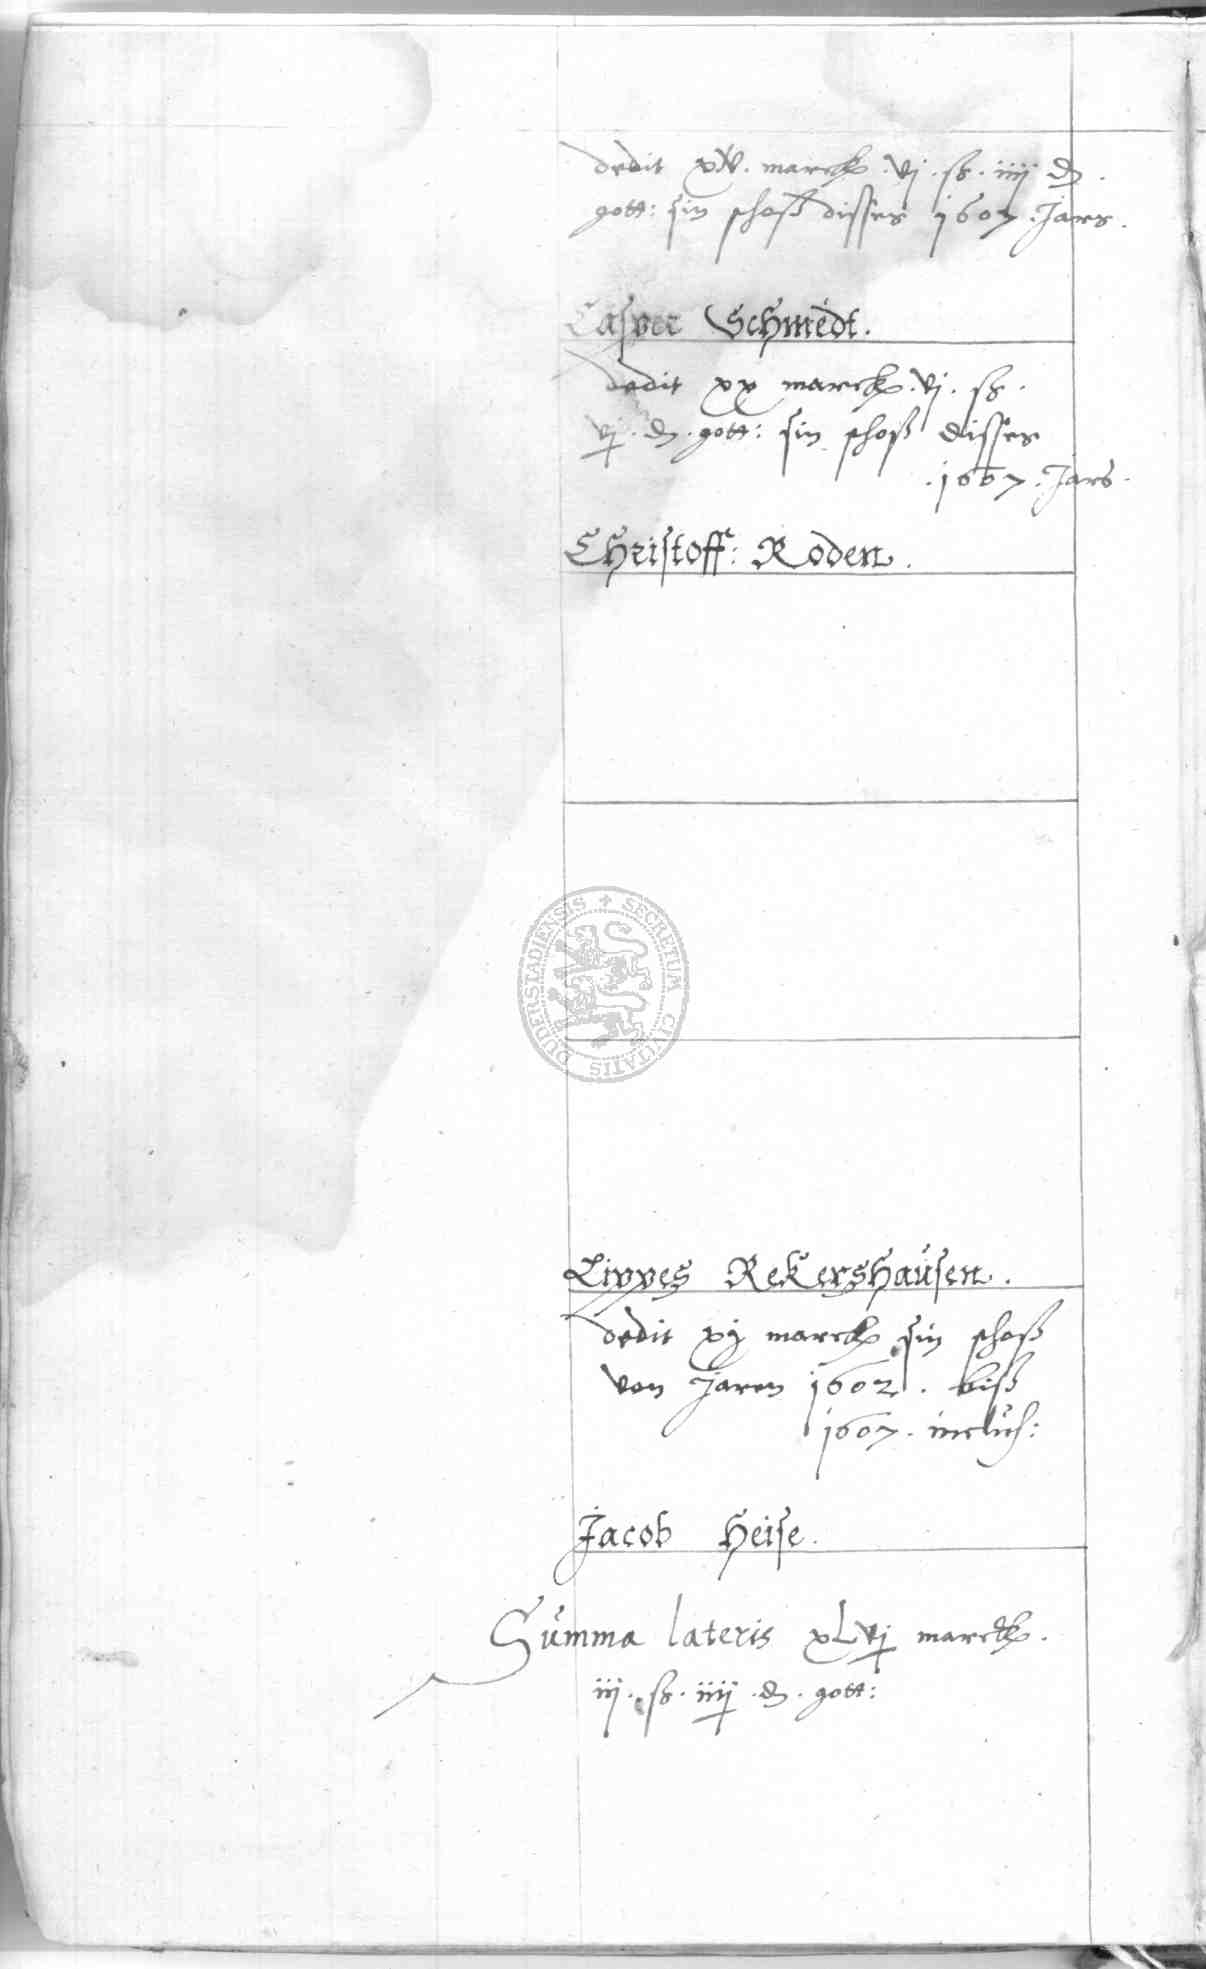 dedit xv. marck. vj. ß. iiij ₰.
gott: sin schoß disses 1607. Jars.
Casper Schmedt.
dedit xx marck. vj. ß.
vj. ₰. gott: sin schoß disses
.1607. Jars.
Christoff: Roden.
SECRETUM CIVITATIS DUDERSTADIENSIS
Lippes Rekershaüsen.
dedit xj marck sin schoß
von Jaren 1602. biß
1607. inclus:
Jacob Heise.
Summa lateris xLvj marck.
iij. ß. iiij. ₰. gott: